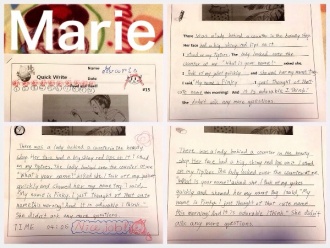 Marie
Name
Quick Write
Date
#15
There was a lady behind a counter in the beauty shop.
Her face had a big, shiny red lips on it.
I stood on my tiptoes. The lady looked over the
counter at me. "What is your name?" asked she.
I took off my jacket quickly and showed her my name tag.
I said, "My name is Pinky. I just thought of that cute
name this morning! And it is adorable I think!"
She didn't ask any more questions.
There was a lady behind a counter in the beauty
shop. Her face had a big shiny red lips on it. I stood
on my tiptoes. The lady looked over the counter at me.
"What is your name?" asked she. I took off my jacket
quickly and showed her my name tag. I said,
"My name is Pinky. I just thought of that cute
name this morning! And it is adorable I think!"
She didn't ask any more questions.
TIME
There was a lady behind a counter in the beauty
shop. Her face had a big, shiny red lips on it. I stood
on my tiptoes. The lady looked over the counter at me.
"What is your name?" asked she. I took off my jacket
quickly and showed her my name tag. I said, "My
name is Pinky. I just thought of that cute name
this morning! And it is adorable I think!" She didn't
ask any more questions.